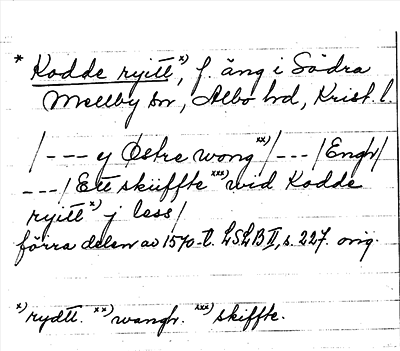 * Kodde ryitt x), f. äng i Södra
Mellby sn, Albo hd, Krist. l.
/--- ej Østre wong xx)/---/Engh/
---/Ett skiiffte xxx) wid Kodde
ryitt x) j less/
förra delen av 1570-t. LSLB II, s. 227. orig.
x) rydtt. xx) wangh. xxx) skiffte.